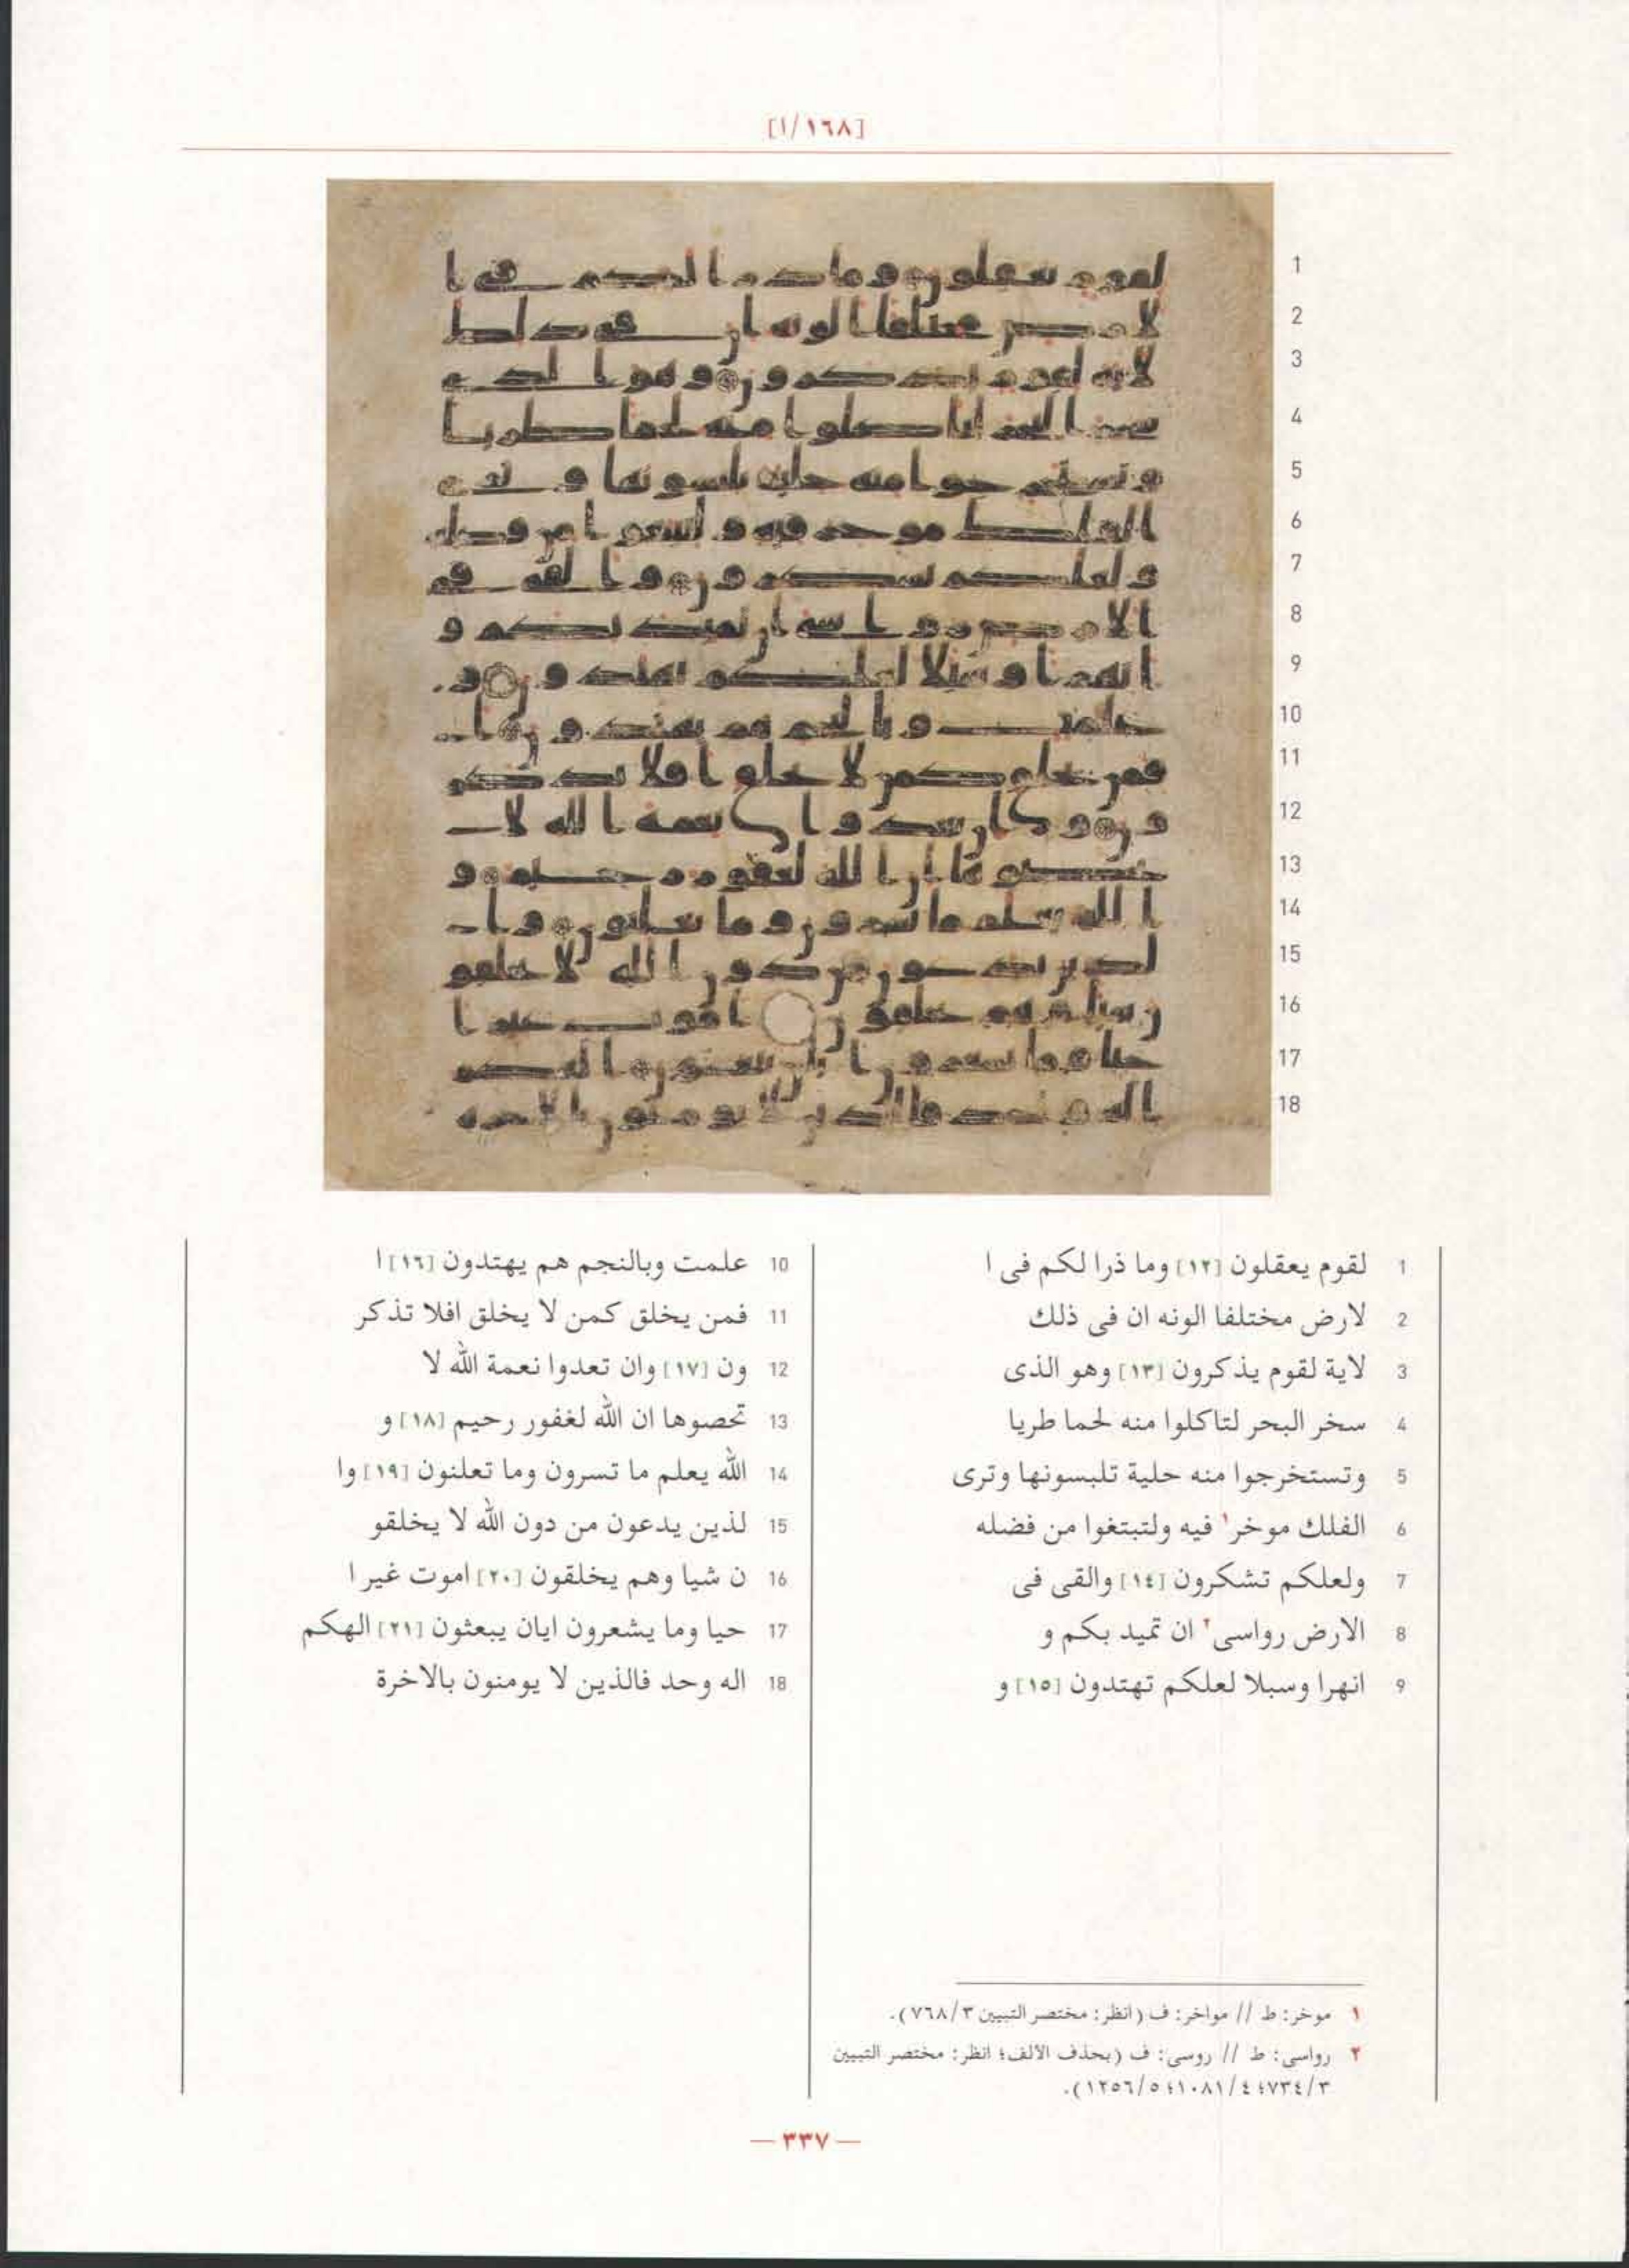 [١٦٨/ا]
1 لقوم يعقلون [١٢] وما ذرا لكم فى ا
2 لارض مختلفا الونه ان فى ذلك
3 لاية لقوم يذكرون [١٣] وهو الذى
4 سخر البحر لتاكلوا منه لحما طريا
5 وتستخرجوا منه حلية تلبسونها وترى
6 الفلك موخر١ فيه ولتبتغوا من فضله
7 ولعلكم تشكرون [١٤] والقى فى
8 الارض رواسى٢ ان تميد بكم و
9 انهرا وسبلا لعلكم تهتدون [١٥] و
10 علمت وبالنجم هم يهتدون [١٦] ا
11 فمن يخلق كمن لا يخلق افلا تذكر
12 ون [١٧] وان تعدوا نعمة الله لا
13 تحصوها ان الله لغفور رحيم [١٨] و
14 الله يعلم ما تسرون وما تعلنون [١٩] وا
15 لذين يدعون من دون الله لا يخلقو
16 ن شيا وهم يخلقون [٢٠] اموت غير ا
17 حيا وما يشعرون ايان يبعثون [٢١] الهكم
18 اله وحد فالذين لا يومنون بالاخرة
١ موخر: ط // مواخر: ف (انظر: مختصر التبيين ٧٦٨/٣).
٢ رواسى: ط // روسى: ف (بحذف الالف؛ انظر: مختصر التبيين
٧٣٤/٣؛ ١٠٨١/٤؛ ١٢٥٦/٥).
— ٣٣٧ —